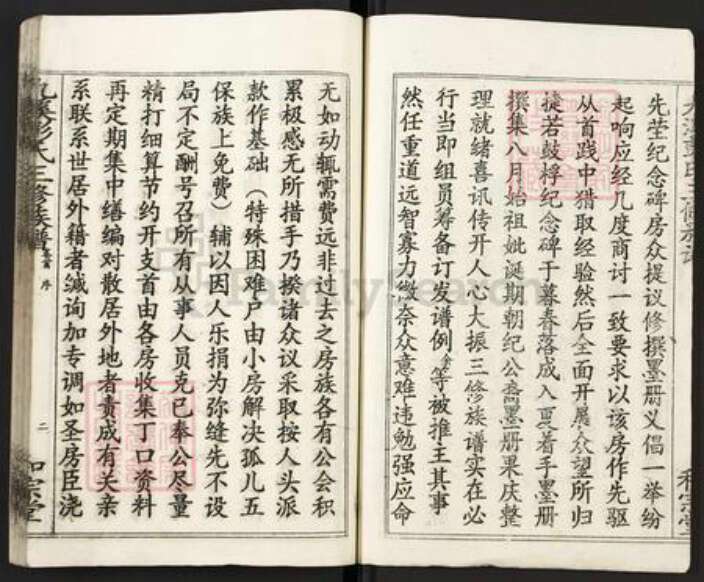 先茔纪念碑房众提议修撰墨册义倡一举纷
起响应经几度商讨一致要求以该房作先驱
从首践中猎取经验然后全面开展众望所归
捷若鼓桴纪念碑于暮春落成入夏着手墨册
撰集八月始祖妣诞期朝纪公裔墨册果庆整
理就绪喜讯传开人心大振三修族谱实在必
行当即组员筹备订发谱例等被推主其事
然任重道远智寡力微奈众意难违勉强应命
无如动辄需费远非过去之房族各有公会积
累极感无所措手乃揆诸众议采取按人头派
款作基础（特殊困难户由小房解决孤儿五
保族上免费）辅以因人乐捐为弥缝先不设
局不定酬号召所有从事人员克己奉公尽量
精打细算节约开支首由各房收集丁口资料
再定期集中缮编对散居外地者责成有关亲
系联系世居外籍者缄询加专调如圣房臣浇
彭氏三修族谱
序
二
和宗堂
FamilySearch